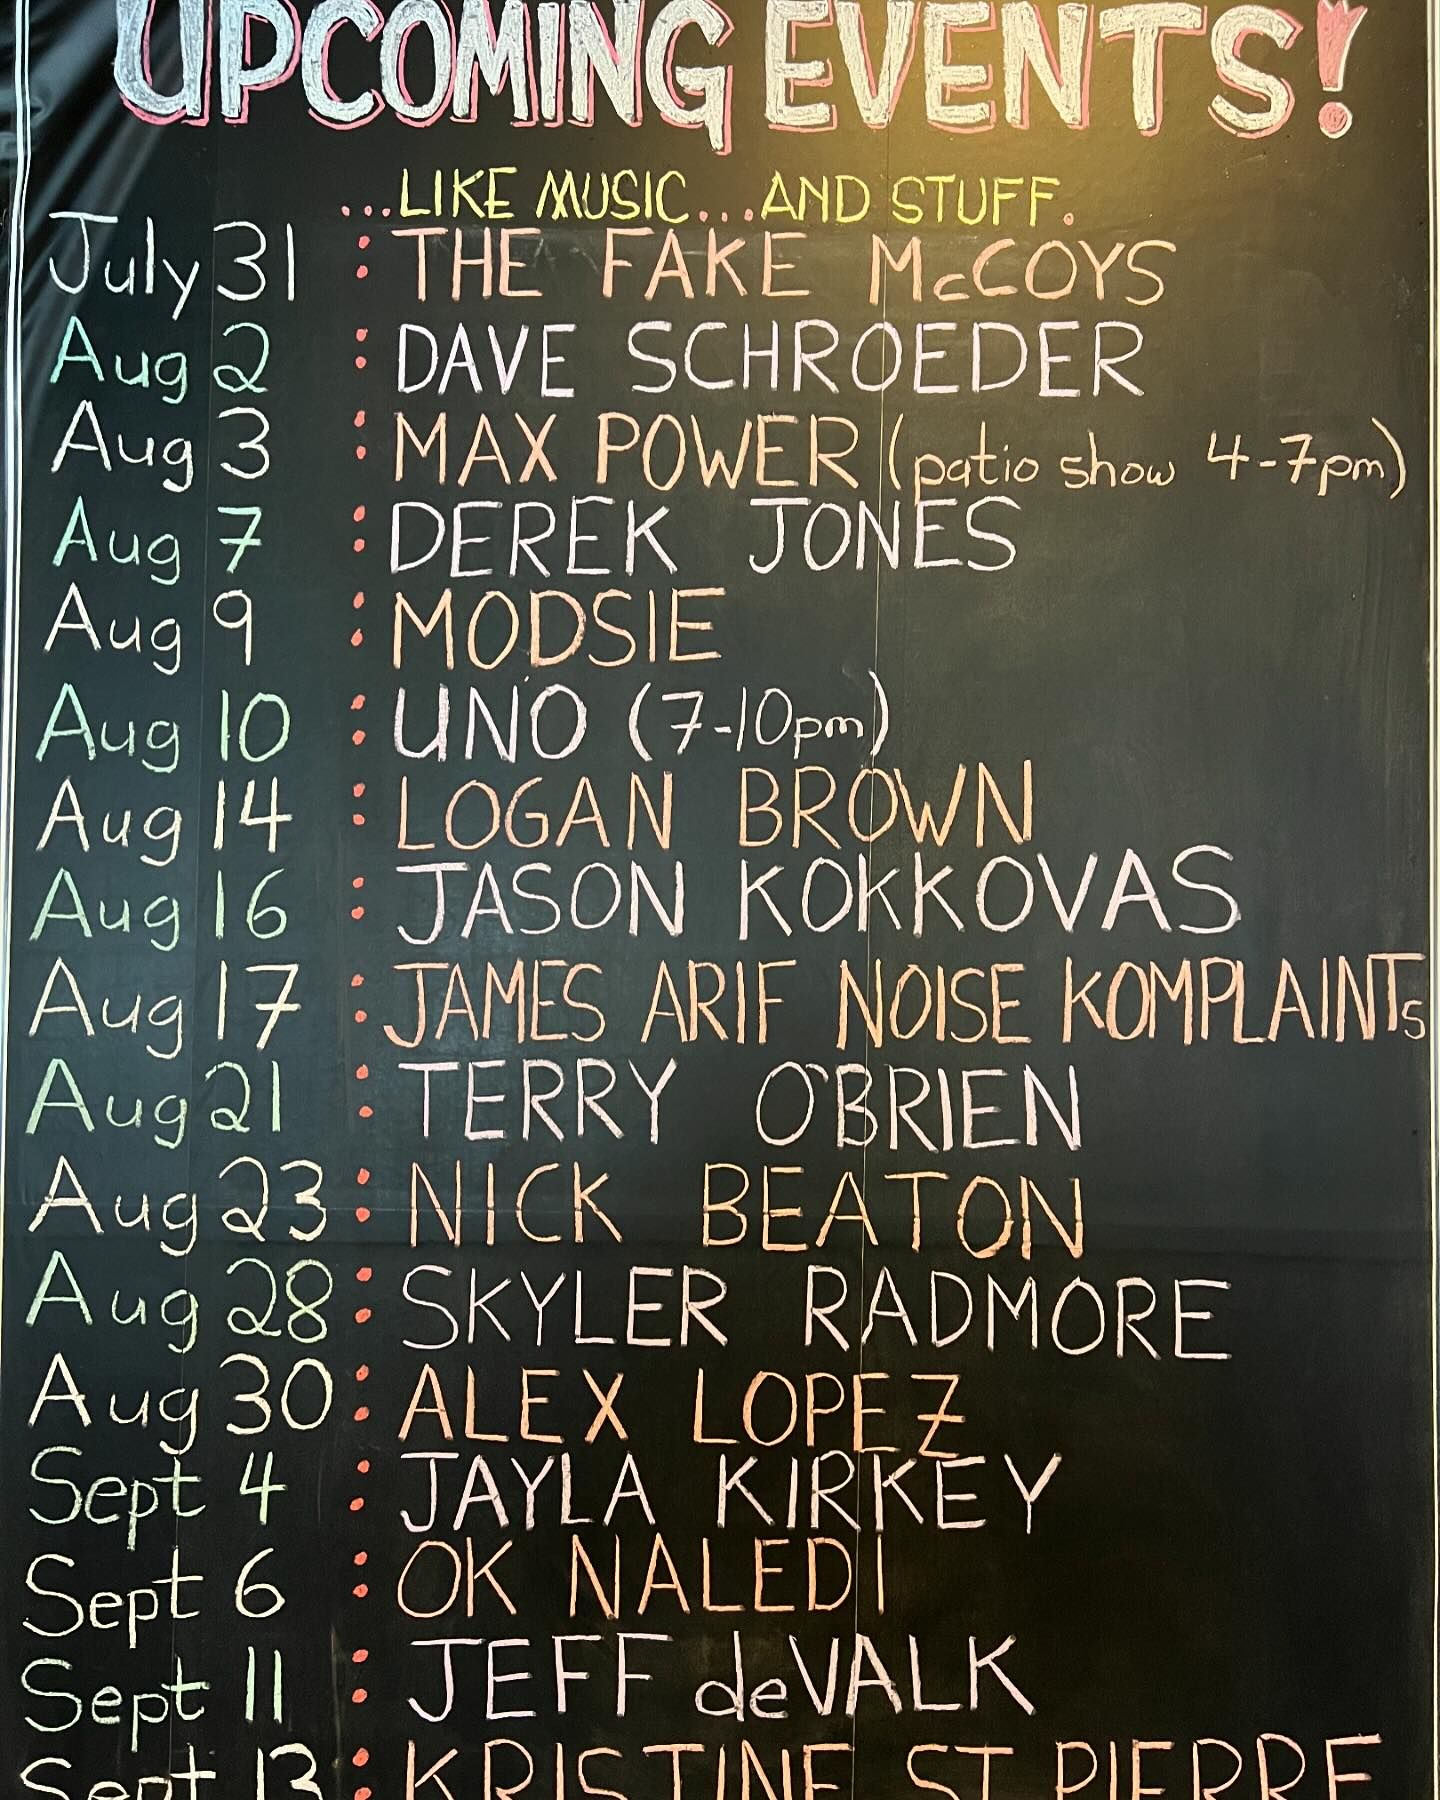 UPCOMING EVENTS!
...LIKE MUSIC...AND STUFF.
July 31 : THE FAKE McCOYS
Aug 2 : DAVE SCHROEDER
Aug 3 : MAX POWER (patio show 4-7pm)
Aug 7 : DEREK JONES
Aug 9 : MODSIE
Aug 10 : UNO (7-10pm)
Aug 14 : LOGAN BROWN
Aug 16 : JASON KOKKOVAS
Aug 17 : JAMES ARIF NOISE KOMPLAINTs
Aug 21 : TERRY O'BRIEN
Aug 23 : NICK BEATON
Aug 28 : SKYLER RADMORE
Aug 30 : ALEX LOPEZ
Sept 4 : JAYLA KIRKEY
Sept 6 : OK NALEDI
Sept 11 : JEFF deVALK
Sept 13 : KRISTINE ST PIERRE